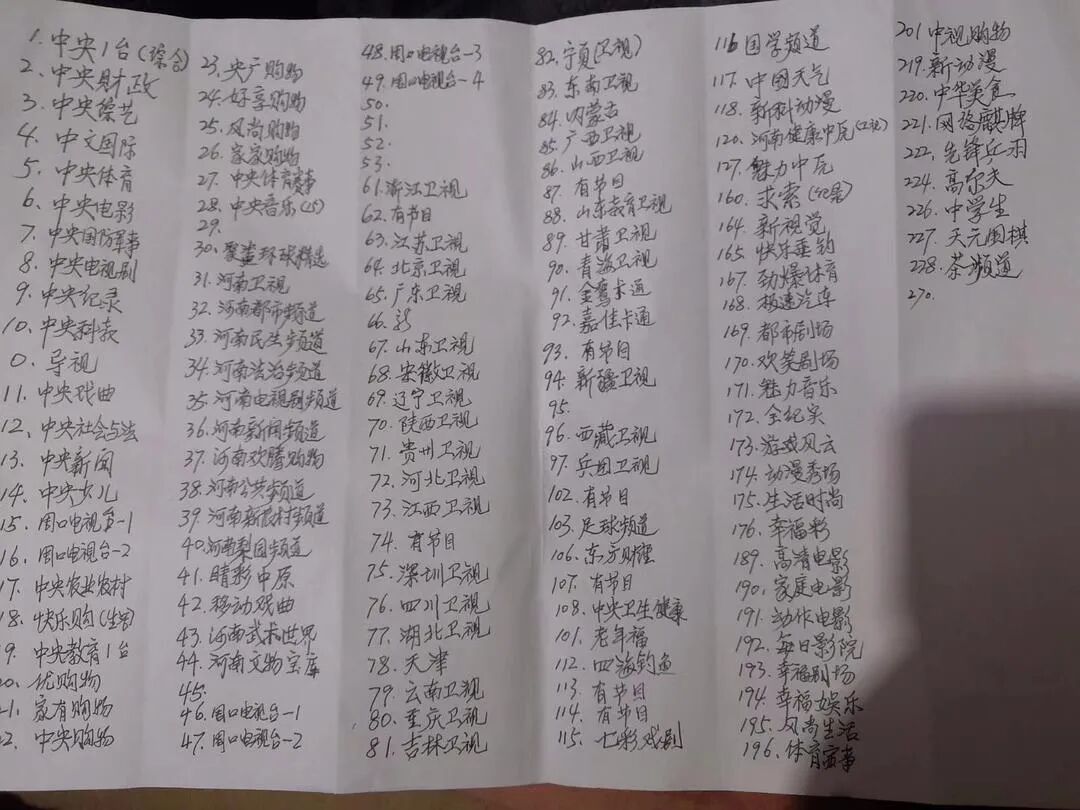 1. 中央1台(综合)
2. 中央财政
3. 中央综艺
4. 中文国际
5. 中央体育
6. 中央电影
7. 中央国防军事
8. 中央电视剧
9. 中央纪录
10. 中央科教
0. 导视
11. 中央戏曲
12. 中央社会与法
13. 中央新闻
14. 中央少儿
15. 周口电视台-1
16. 周口电视台-2
17. 中央农业农村
18. 快乐购
19. 中央教育1台
20. 优购物
21. 家有购物
22. 中央购物
23. 央广购物
24. 好享购物
25. 风尚购物
26. 家家购物
27. 中央体育赛事
28. 中央音乐(15)
29.
30. 聚鲨环球精选
31. 河南卫视
32. 河南都市频道
33. 河南民生频道
34. 河南法治频道
35. 河南电视剧频道
36. 河南新闻频道
37. 河南欢腾购物
38. 河南公共频道
39. 河南新农村频道
40. 河南梨园频道
41. 睛彩中原
42. 移动戏曲
43. 河南武术世界
44. 河南文物宝库
45.
46. 周口电视台-1
47. 周口电视台-2
48. 周口电视台-3
49. 周口电视台-4
50.
51.
52.
53.
61. 浙江卫视
62. 有节目
63. 江苏卫视
64. 北京卫视
65. 广东卫视
66.
67. 山东卫视
68. 安徽卫视
69. 辽宁卫视
70. 陕西卫视
71. 贵州卫视
72. 河北卫视
73. 江西卫视
74. 有节目
75. 深圳卫视
76. 四川卫视
77. 湖北卫视
78. 天津
79. 云南卫视
80. 重庆卫视
81. 吉林卫视
82. 宁夏(卫视)
83. 东南卫视
84. 内蒙古
85. 广西卫视
86. 山西卫视
87. 有节目
88. 山东教育卫视
89. 甘肃卫视
90. 青海卫视
91. 金鹰卡通
92. 嘉佳卡通
93. 有节目
94. 新疆卫视
95.
96. 西藏卫视
97. 兵团卫视
102. 有节目
103. 足球频道
106. 东方财经
107. 有节目
108. 中央卫生健康
101. 老年福
112. 四海钓鱼
113. 有节目
114. 有节目
115. 七彩戏剧
116 国学频道
117. 中国天气
118. 新科动漫
120. 河南健康中原(卫视)
127. 魅力中原
160. 求索(纪录)
164. 新视觉
165. 快乐垂钓
167. 劲爆体育
168. 极速汽车
169. 都市剧场
170. 欢笑剧场
171. 魅力音乐
172. 全纪实
173. 游戏风云
174. 动漫秀场
175. 生活时尚
176. 幸福彩
189. 高清电影
190. 家庭电影
191. 动作电影
192. 每日影院
193. 幸福剧场
194. 幸福娱乐
195. 风尚生活
196. 体育赛事
201 中视购物
219. 新动漫
220. 中华美食
221. 网络麒牌
222. 先锋乒羽
224. 高尔夫
226. 中学生
227. 天元围棋
228. 茶频道
270.